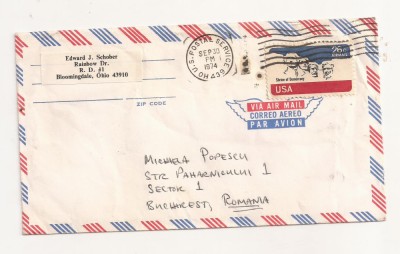 Edward J. Schober
Rainbow Dr.
R. D. #1
Bloomingdale, Ohio 43910
U.S. POSTAL SERVICE
SEP 30
PM
1974
26c
AIRMAIL
Shrine of Democracy
USA
ZIP CODE
VIA AIR MAIL
CORREO AEREO
PAR AVION
MICHAELA POPESCU
STR PAHARNICULUI 1
SECTOR 1
BUCHAREST, ROMANIA